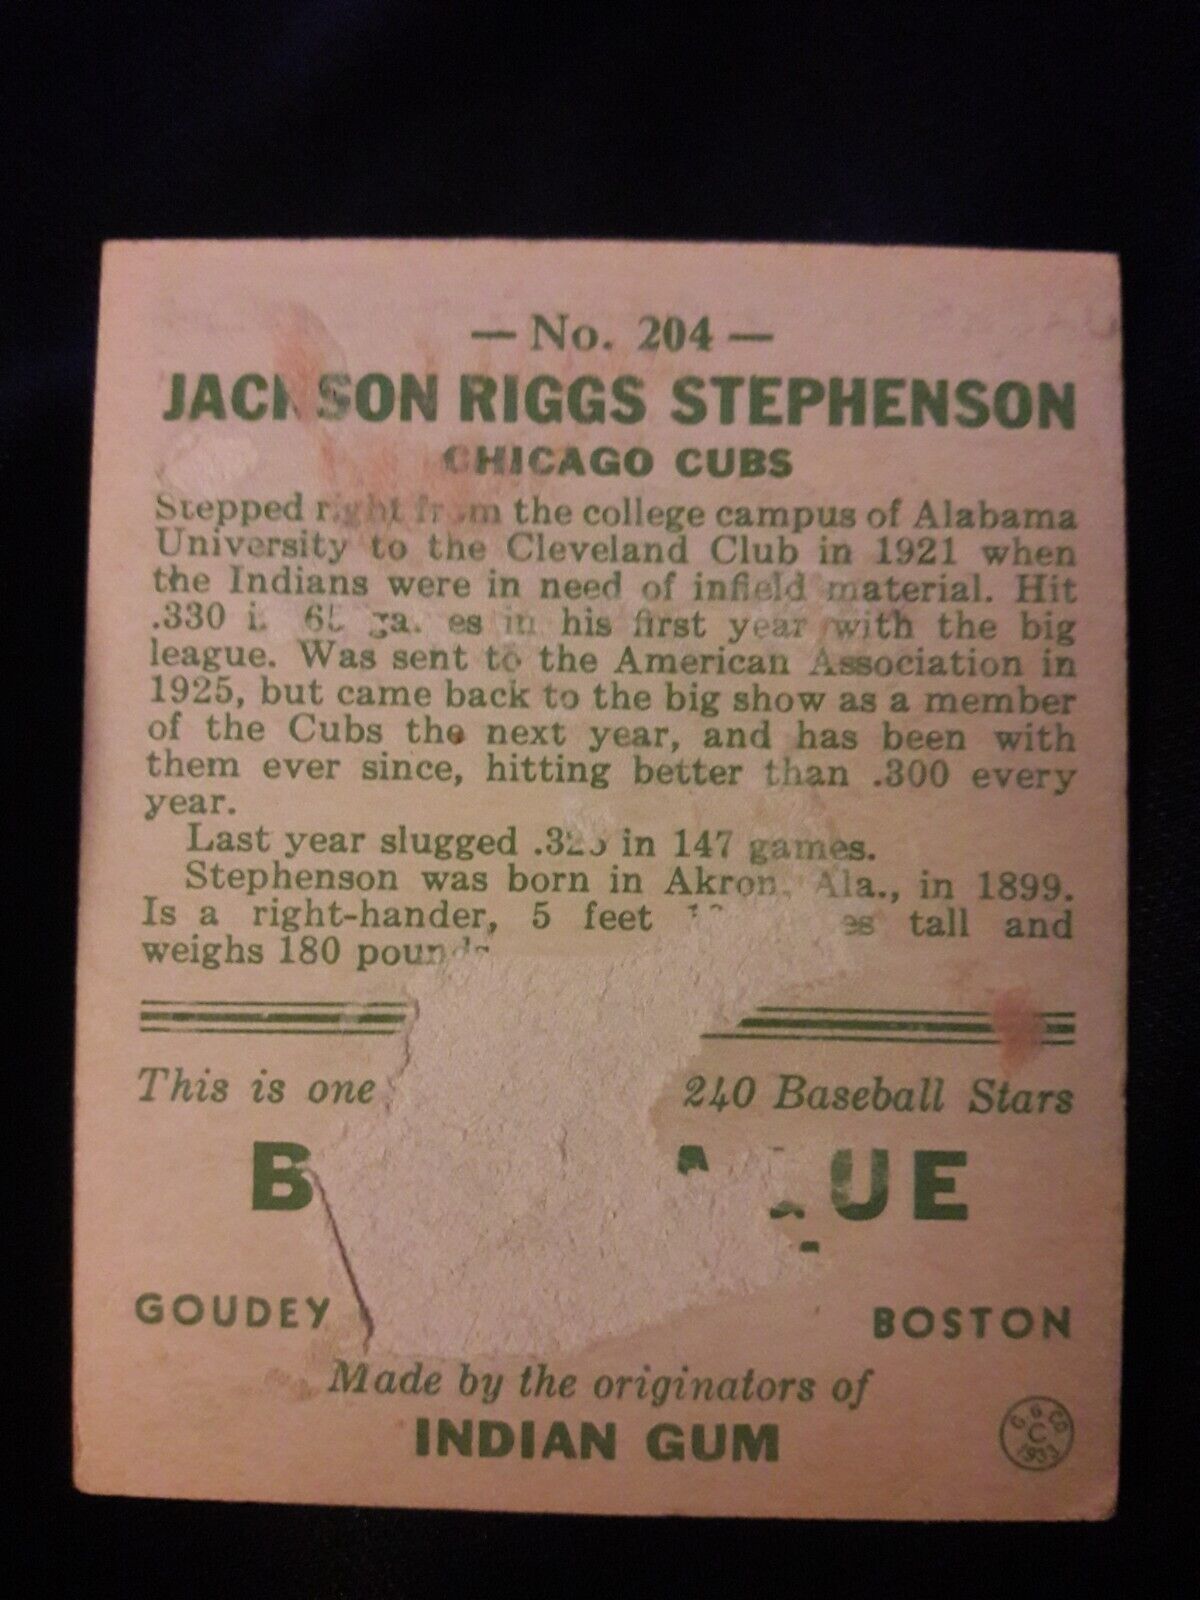 — No. 204 —
JACKSON RIGGS STEPHENSON
CHICAGO CUBS
Stepped right from the college campus of Alabama
University to the Cleveland Club in 1921 when
the Indians were in need of infield material. Hit
.330 in 65 games in his first year with the big
league. Was sent to the American Association in
1925, but came back to the big show as a member
of the Cubs the next year, and has been with
them ever since, hitting better than .300 every
year.
Last year slugged in 147 games.
Stephenson was born in Akron, Ala., in 1899.
Is a right-hander, 5 feet tall and
weighs 180 pounds
This is one 240 Baseball Stars
GOUDEY BOSTON
Made by the originators of
INDIAN GUM
G. G. CO.
C
1933